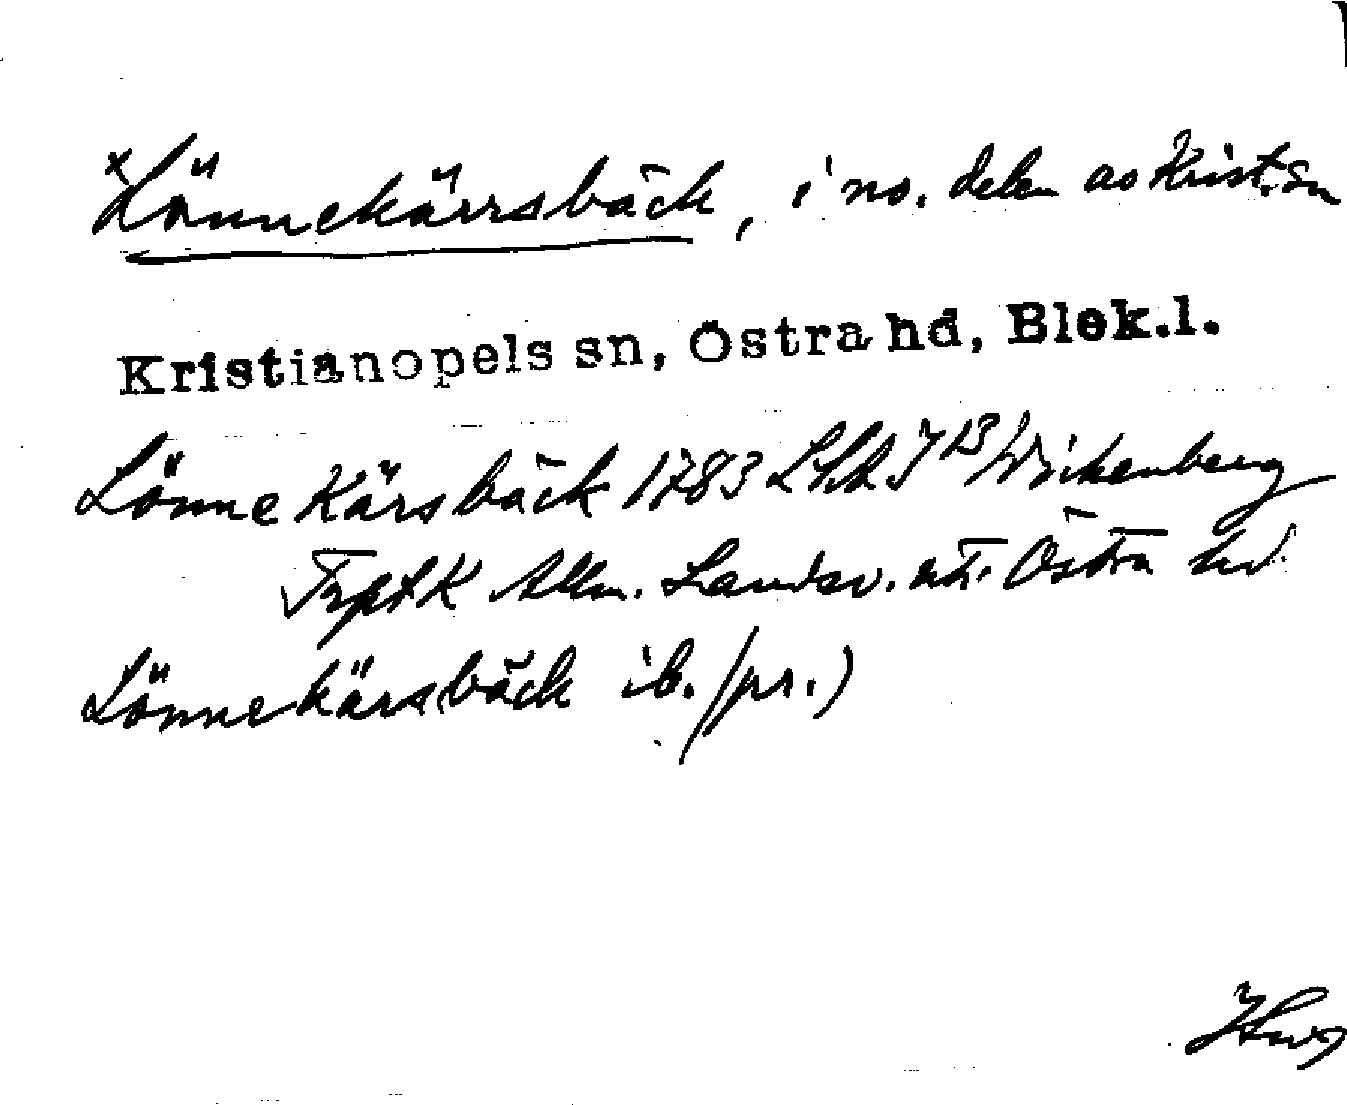 xLönnekärrsbäck, i no. delen av Krist. sn
Kristianopels sn, Östra hd, Blek.l.
Lönne Kärsbäck 1783 Wikenberg
Allm. Landsv. Östra hd
Lönnekärsbäck ib. (pr.)